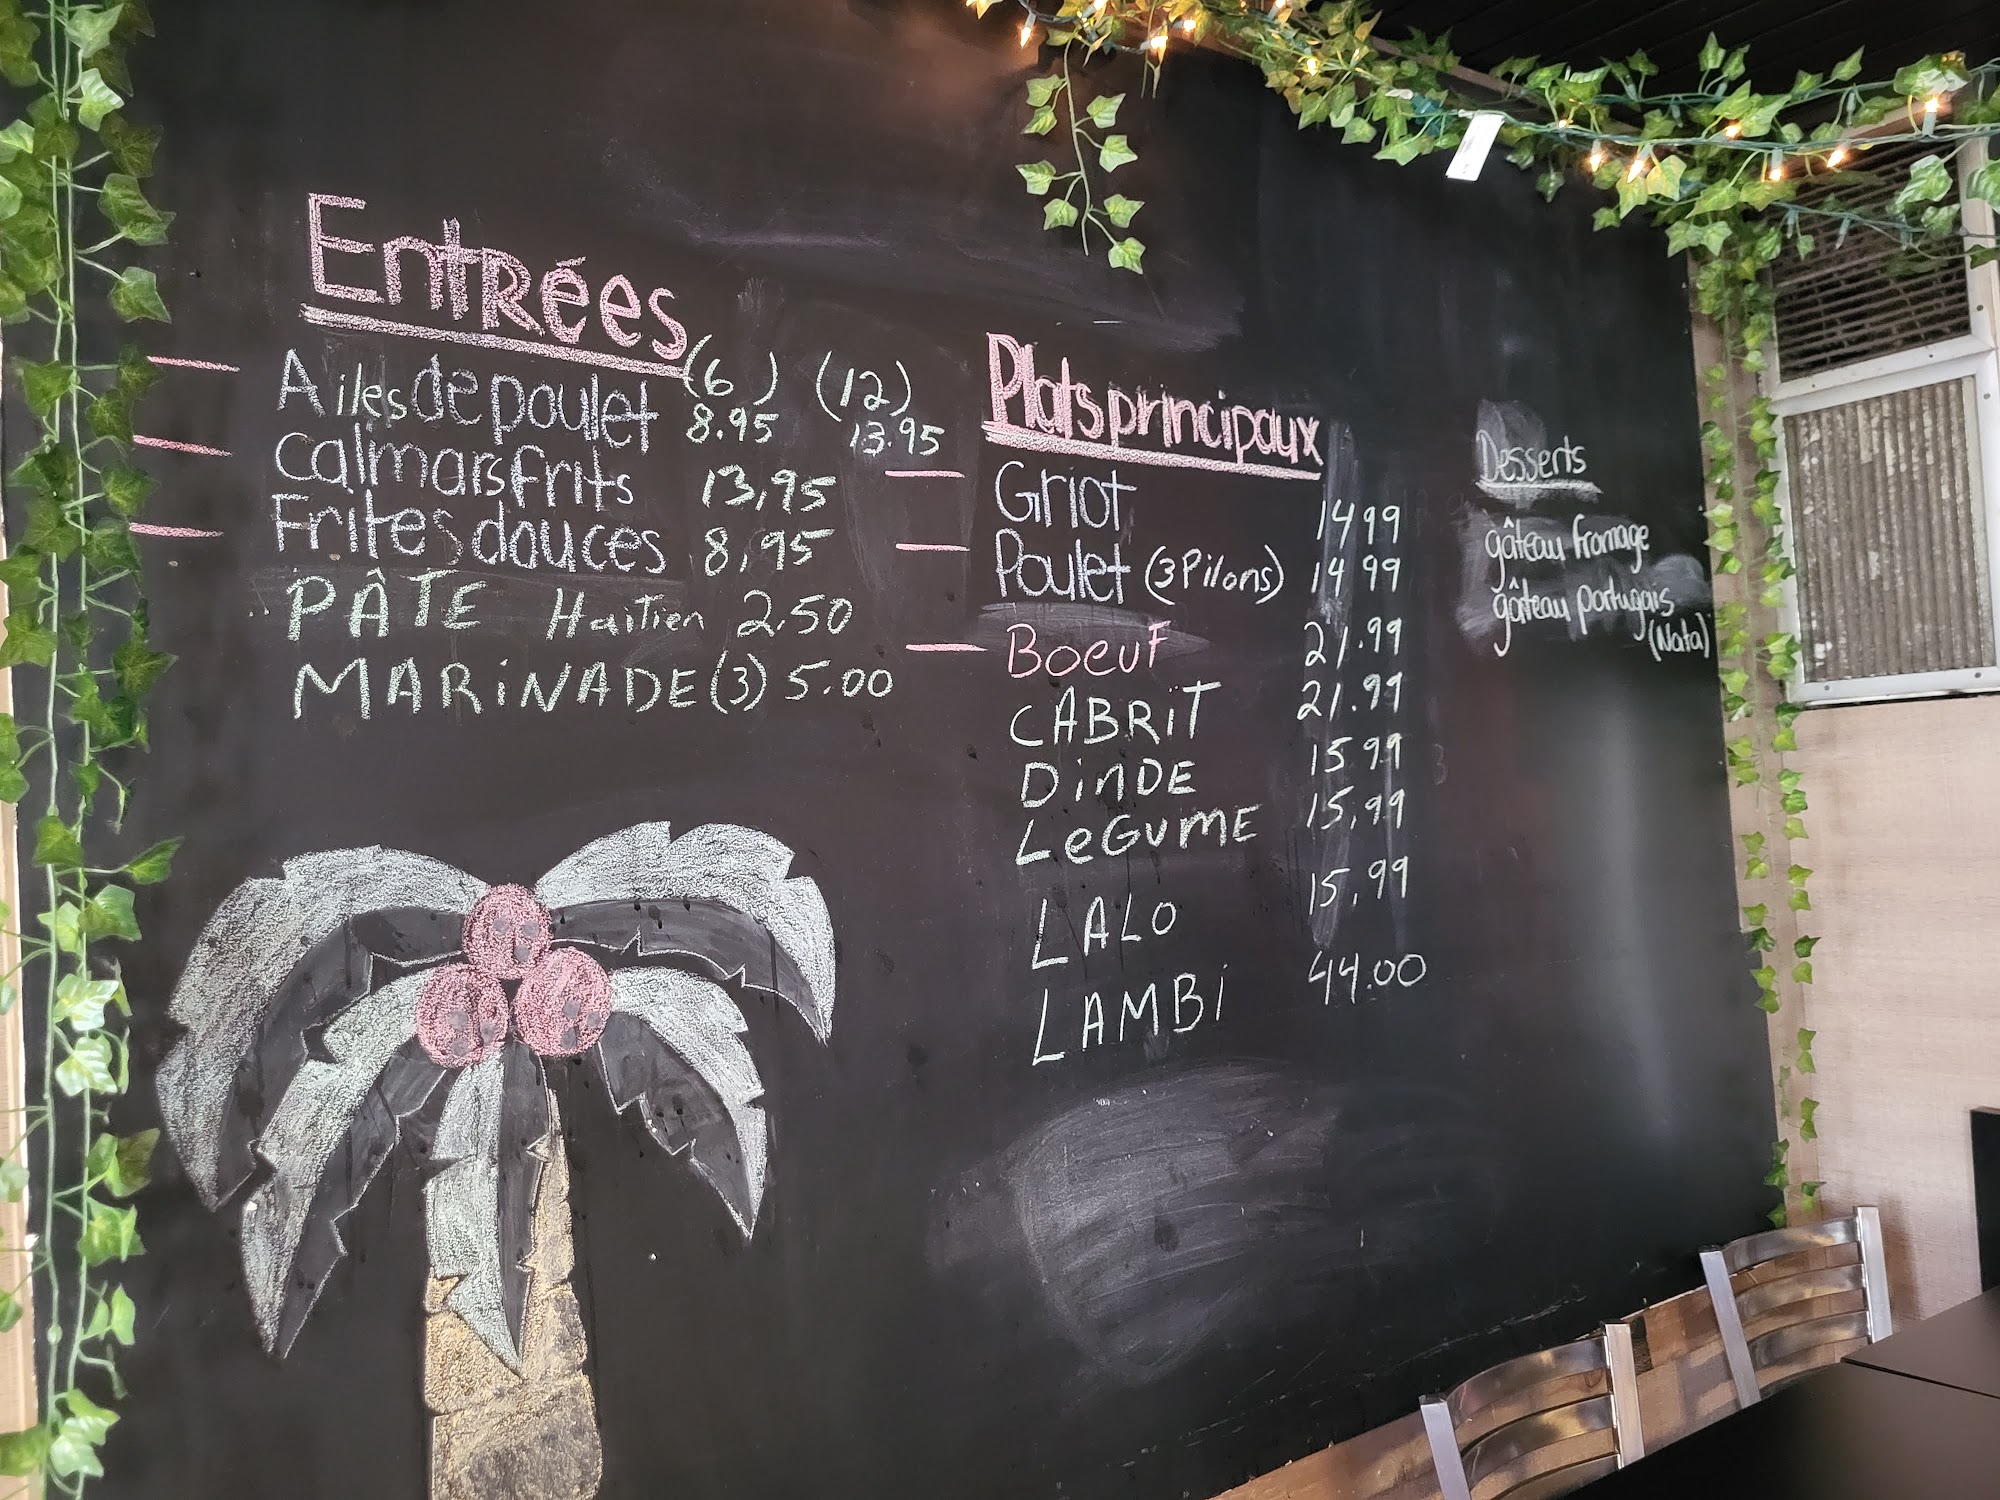 Entrées
Ailes de poulet (6) (12)
8.95 13.95
calmars frits 13,95
Frites douces 8,95
PÂTE Haitien 2.50
MARiNADE (3) 5.00
Plats principaux
Griot 14 99
Poulet (3 Pilons) 14 99
Boeuf 21.99
CABRiT 21.99
DinDE 15 99
LeGUmE 15,99
LALO 15,99
LAMBi 44.00
Desserts
gâteau fromage
gâteau portugais
(Nata)